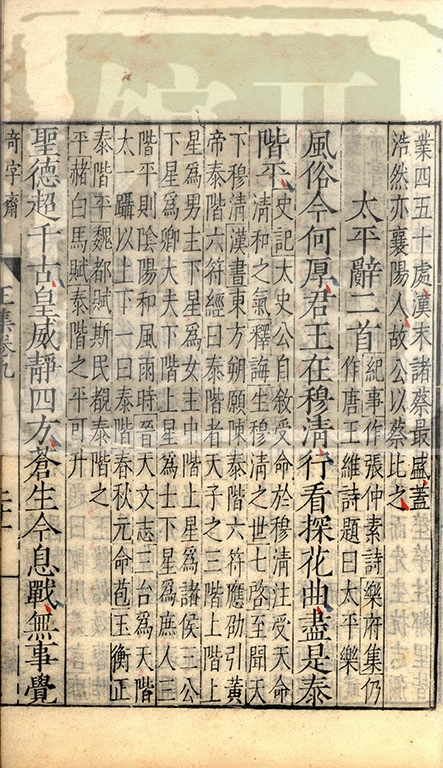 業四五十處漢末諸蔡最盛蓋
浩然亦襄陽人故公以蔡比之
太平辭二首
紀事作張仲素詩樂府集仍
作唐王維詩題曰太平樂
風俗今何厚君王在穆清行看探花曲盡是泰
階平
史記太史公自敘受命於穆清注受天命
清和之氣釋誨生穆清之世七啓至聞天
下穆清漢書東方朔願陳泰階六符應劭引黃
帝泰階六符經曰泰階者天子之三階上階上
星爲男主下星爲女主中階上星爲諸侯三公
下星爲卿大夫下階上星爲士下星爲庶人三
階平則陰陽和風雨時晉天文志三台爲天階
太一躡以上下一曰泰階春秋元命苞玉衡正
泰階平魏都賦斯民覩泰階之
平赭白馬賦泰階之平可升
聖德超千古皇威靜四方蒼生今息戰無事覺
奇字齋
王集卷九